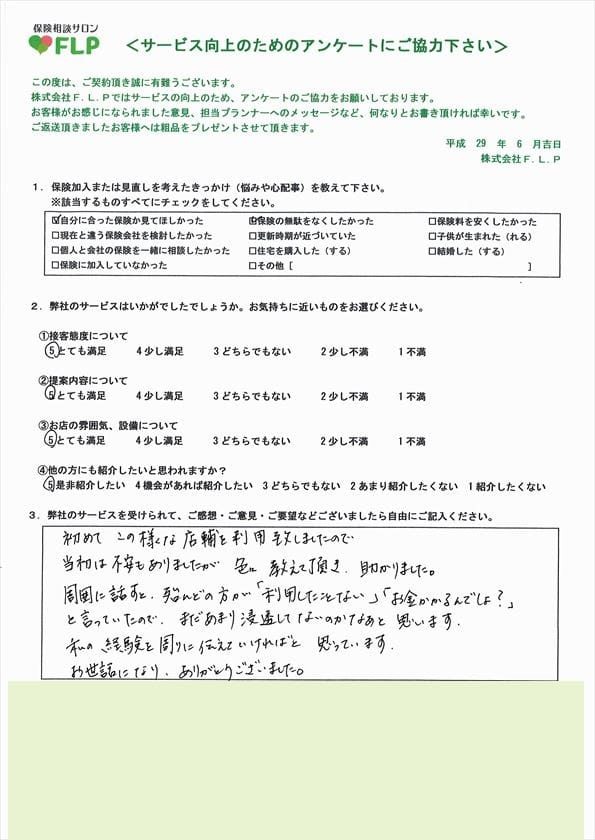 保険相談サロン
FLP
＜サービス向上のためのアンケートにご協力下さい＞
この度は、ご契約頂き誠に有難うございます。
株式会社Ｆ.Ｌ.Ｐではサービスの向上のため、アンケートのご協力をお願いしております。
お客様がお感じになられました意見、担当プランナーへのメッセージなど、何なりとお書き頂ければ幸いです。
ご返送頂きましたお客様へは粗品をプレゼントさせて頂きます。
平成 29 年 6 月吉日
株式会社Ｆ.Ｌ.Ｐ
１．保険加入または見直しを考えたきっかけ（悩みや心配事）を教えて下さい。
※該当するものすべてにチェックをしてください。
☑自分に合った保険か見てほしかった ☑保険の無駄をなくしたかった □保険料を安くしたかった
□現在と違う保険会社を検討したかった □更新時期が近づいていた □子供が生まれた（れる）
□個人と会社の保険を一緒に相談したかった □住宅を購入した（する） □結婚した（する）
□保険に加入していなかった □その他［ ］
２．弊社のサービスはいかがでしたでしょうか。お気持ちに近いものをお選びください。
①接客態度について
5とても満足 4少し満足 3どちらでもない 2少し不満 1不満
②提案内容について
5とても満足 4少し満足 3どちらでもない 2少し不満 1不満
③お店の雰囲気、設備について
5とても満足 4少し満足 3どちらでもない 2少し不満 1不満
④他の方にも紹介したいと思われますか？
5是非紹介したい 4機会があれば紹介したい 3どちらでもない 2あまり紹介したくない 1紹介したくない
３．弊社のサービスを受けられて、ご感想・ご意見・ご要望などございましたら自由にご記入ください。
初めて この様な店舗を利用致しましたので
当初は不安もありましたが 色々教えて頂き、助かりました。
周囲に話すと、殆んどの方が「利用したことない」「お金かかるんでしょ？」
と言っていたので、まだあまり浸透してないのかなあと思います.
私の経験を周りに伝えていければと 思っています.
お世話になり、ありがとうございました。